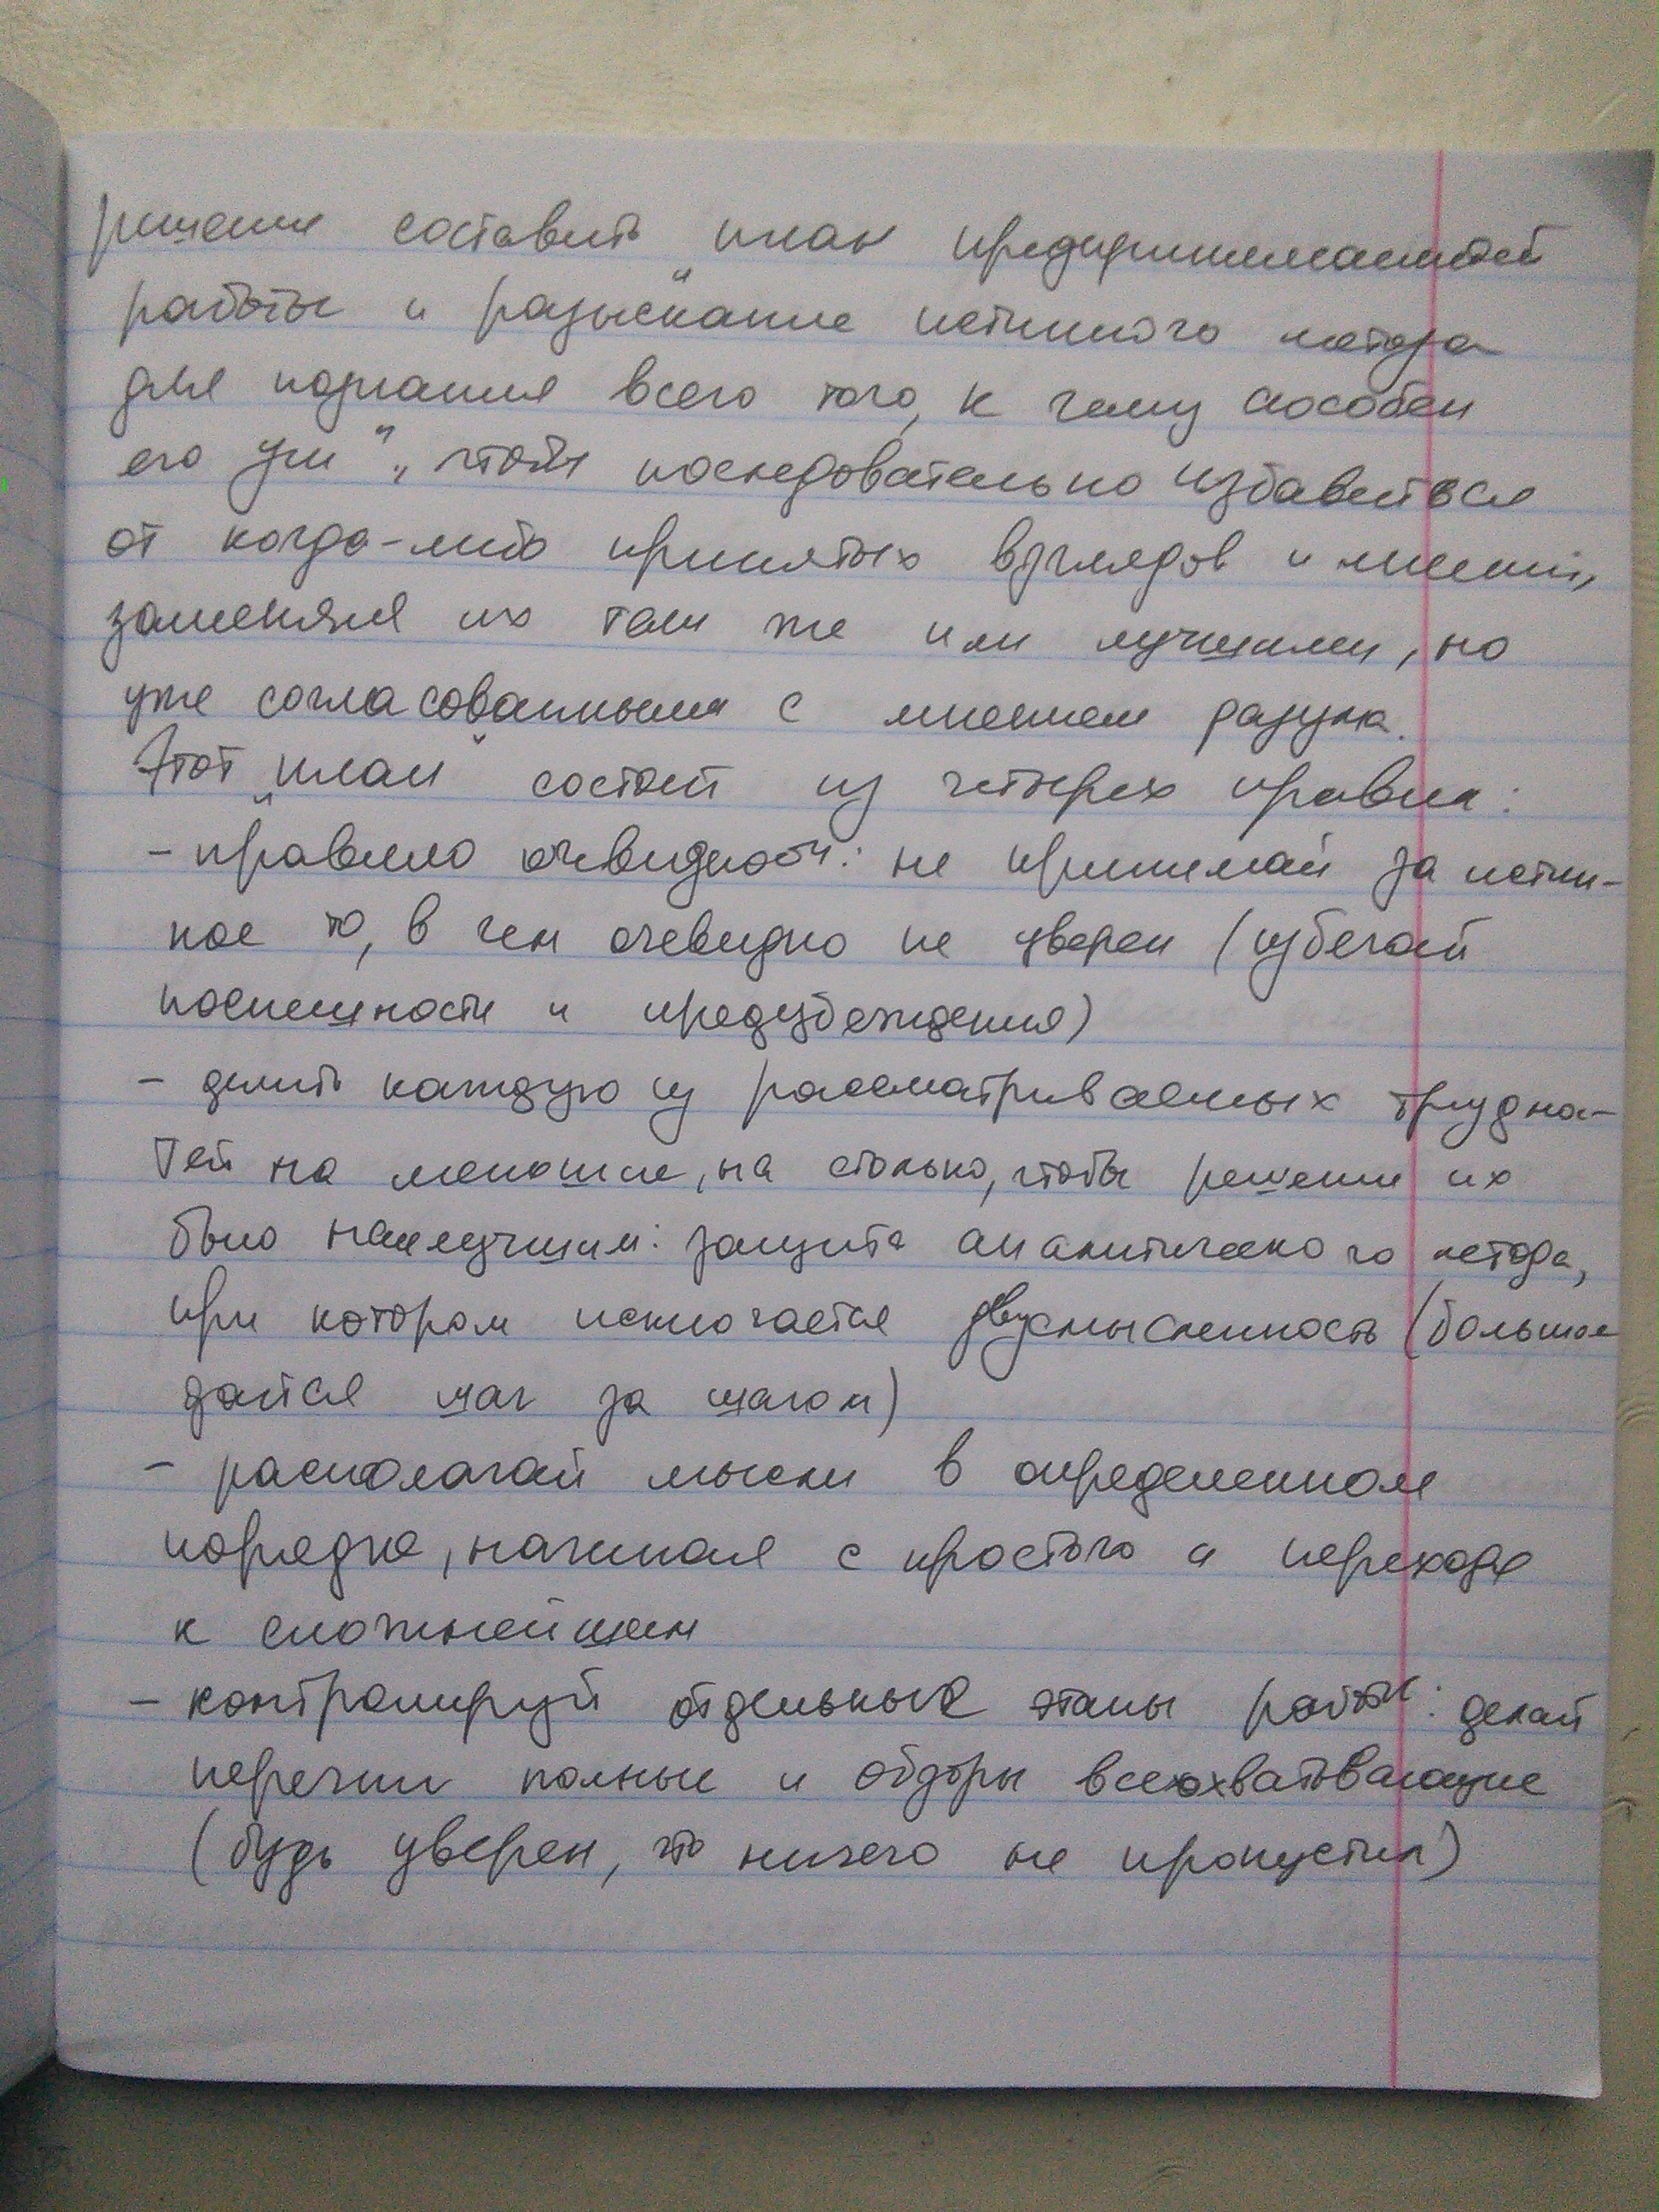 решение составить план предпринимаемой
работы и „разыскание истинного метода
для познания всего того, к чему способен
его ум", чтобы последовательно избавиться
от когда-либо принятых взглядов и мнений,
заменяя их теми же или лучшими, но
уже согласованными с мнением разума.
Этот „план" состоит из четырех правил:
- правило очевидности: не принимай за истин-
ное то, в чем очевидно не уверен (избегай
поспешности и предубеждения)
- делить каждую из рассматриваемых трудно-
тей на меньшие, на столько, чтобы решение их
было наилучшим: защита аналитического метода,
при котором исключается двусмысленность (большое
дается шаг за шагом)
- располагай мысли в определенном
порядке, начиная с простого и переходя
к сложнейшем
- контролируй отдельные этапы работы: делай
перечни полные и обзоры всеохватывающие
(будь уверен, что ничего не пропустил)